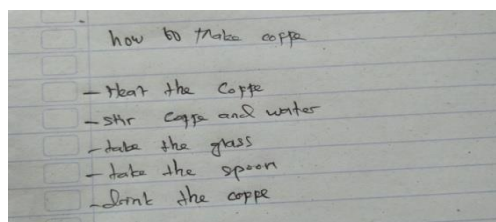 how to make coffe
- Heat the coffe
- stir coffe and water
- take the glass
- take the spoon
- drink the coppe